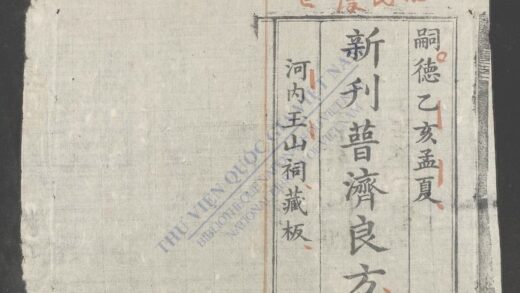 嗣德乙亥孟夏
新刊普濟良方
河内玉山祠藏板
THƯ VIỆN QUỐC GIA VIỆT NAM
BIBLIOTHÈQUE NATIONALE DU VIETNAM
NATIONAL LIBRARY OF VIETNAM